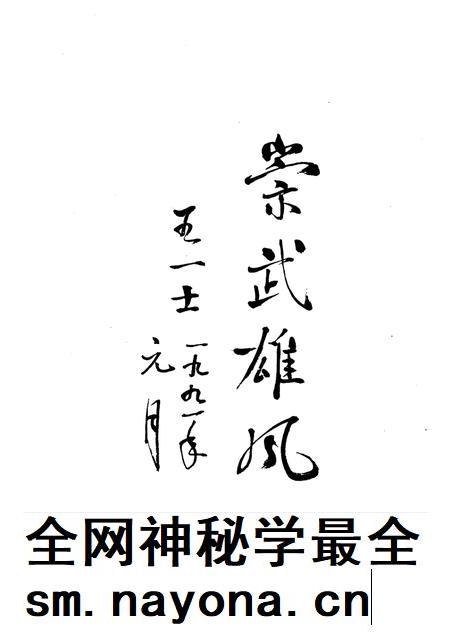 崇武雄风
王一士
一九九一年
元月
全网神秘学最全
sm.nayona.cn